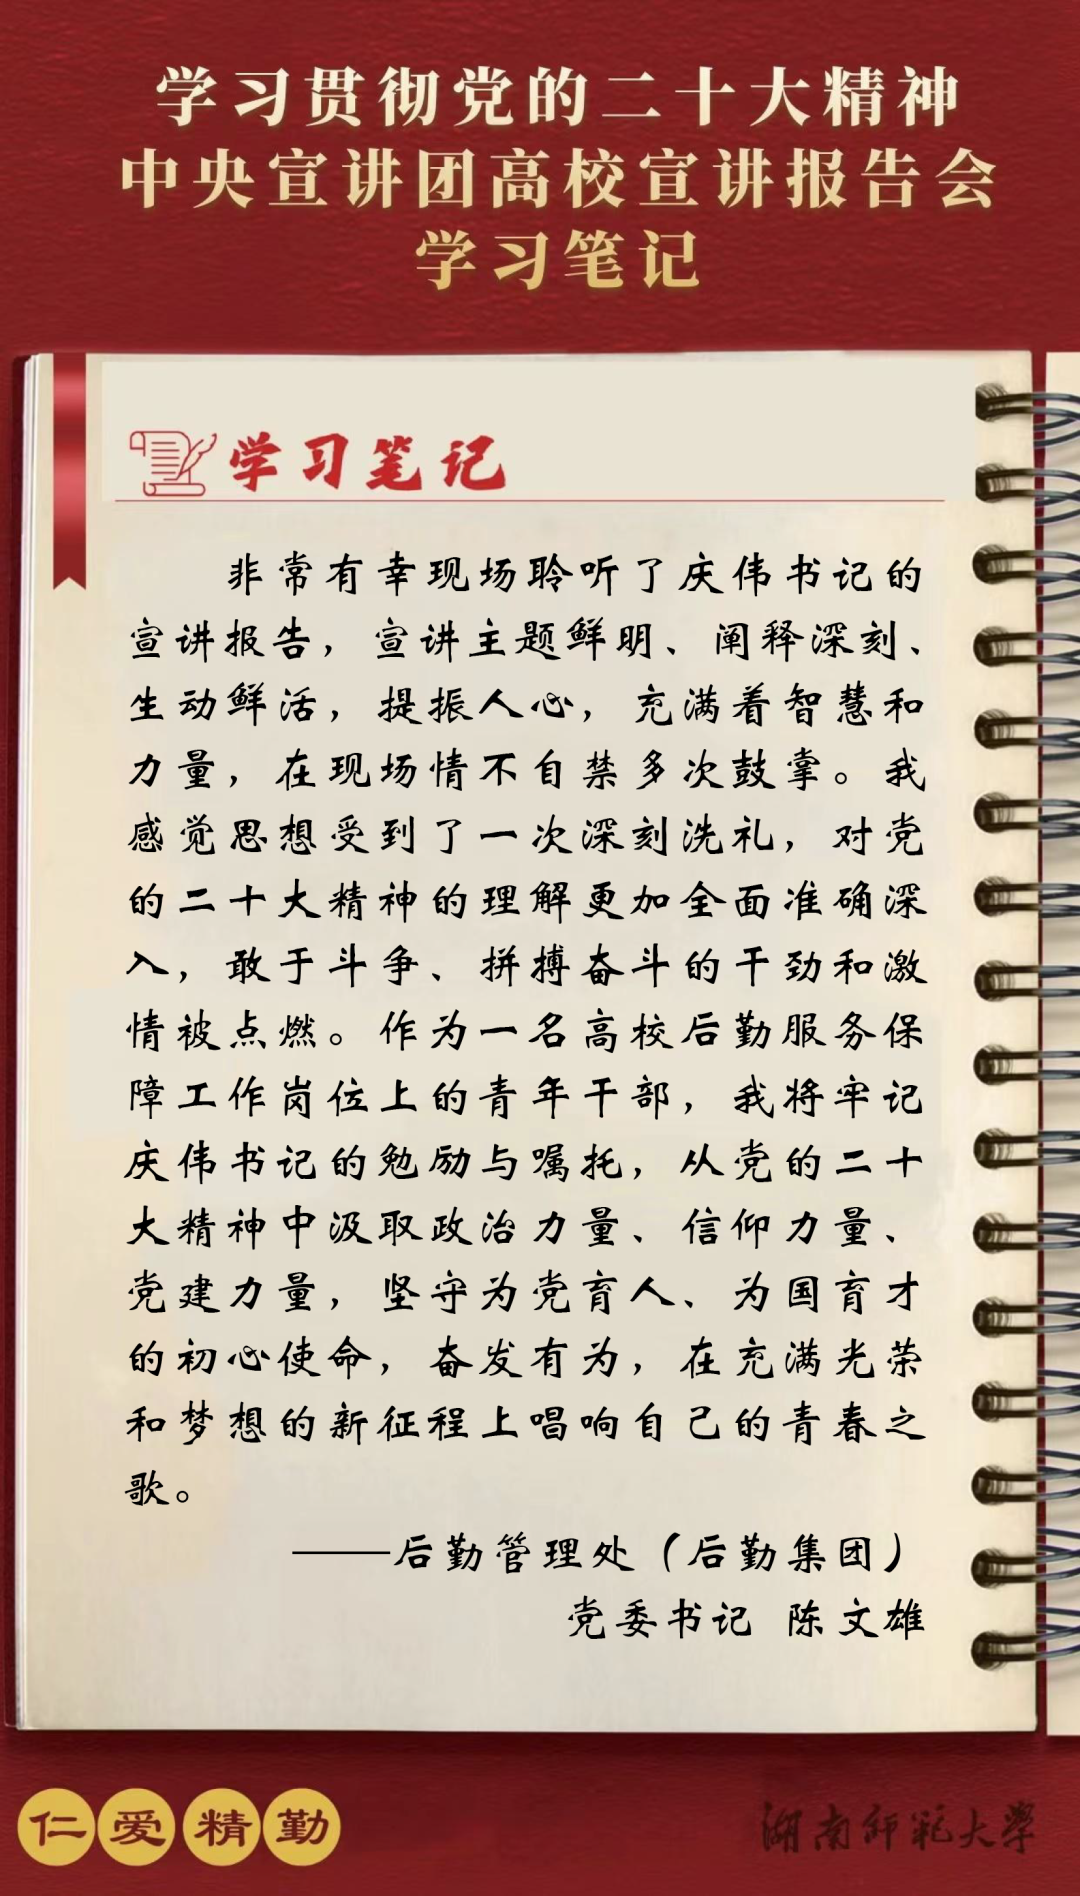 学习贯彻党的二十大精神
中央宣讲团高校宣讲报告会
学习笔记
学习笔记
非常有幸现场聆听了庆伟书记的
宣讲报告，宣讲主题鲜明、阐释深刻、
生动鲜活，提振人心，充满着智慧和
力量，在现场情不自禁多次鼓掌。我
感觉思想受到了一次深刻洗礼，对党
的二十大精神的理解更加全面准确深
入，敢于斗争、拼搏奋斗的干劲和激
情被点燃。作为一名高校后勤服务保
障工作岗位上的青年干部，我将牢记
庆伟书记的勉励与嘱托，从党的二十
大精神中汲取政治力量、信仰力量、
党建力量，坚守为党育人、为国育才
的初心使命，奋发有为，在充满光荣
和梦想的新征程上唱响自己的青春之
歌。
——后勤管理处（后勤集团）
党委书记 陈文雄
仁爱精勤
湖南师范大学